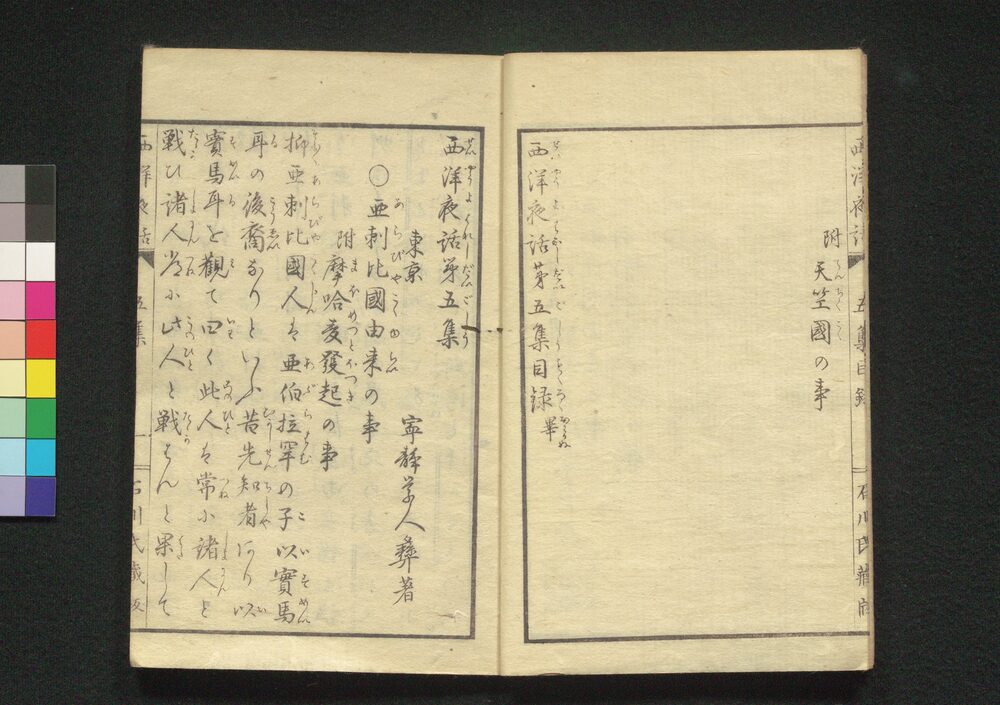 西洋夜話 五集目録 石川氏蔵版
附 天竺國の事
西洋夜話第五集目録畢
西洋夜話第五集
東京 寧静学人彝著
○亜刺比國由来の事
附摩哈麦發起の事
抑亜刺比國人ハ亜伯拉罕の子以實馬
耳の後裔なりといふ昔先知者ありり以
實馬耳を觀て曰く此人ハ常に諸人と
戦ひ諸人常に此人と戦はんと果して
西洋夜話 五集 一 石川氏蔵版